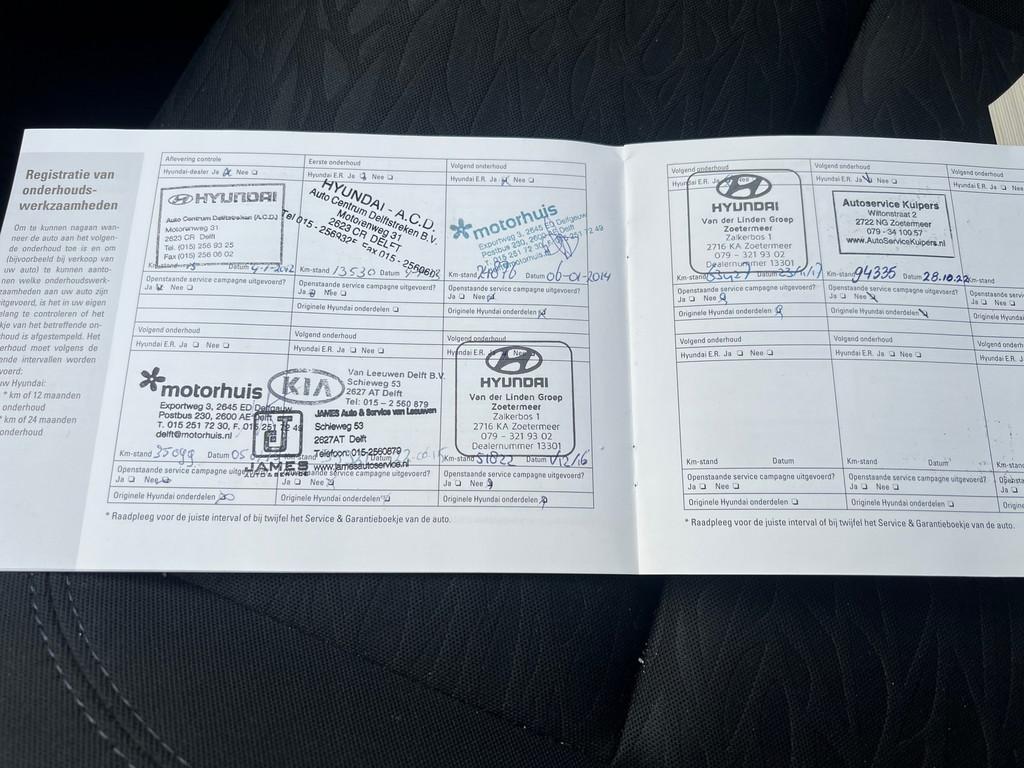 Registratie van
onderhouds-
werkzaamheden
Om te kunnen nagaan wan-
neer de auto aan het volgen-
de onderhoud toe is en om
(bijvoorbeeld bij verkoop van
uw auto) te kunnen aanto-
nen welke onderhoudswerk-
zaamheden aan uw auto zijn
uitgevoerd, is het in uw eigen
elang te controleren of het
kje van het betreffende on-
rhoud is afgestempeld. Het
erhoud moet volgens de
ende intervallen worden
oerd:
uw Hyundai:
* km of 12 maanden
onderhoud
* km of 24 maanden
onderhoud
Aflevering controle
Hyundai-dealer Ja Nee
HYUNDAI
Auto Centrum Delftstreken (A.C.D.)
Motorenweg 31
2623 CR Delft
Tel. (015) 256 93 25
Fax (015) 256 06 02
Km-stand 15 Datum 4-1-2012
Openstaande service campagne uitgevoerd?
Ja Nee
Eerste onderhoud
Hyundai E.R. Ja Nee
HYUNDAI - A.C.D.
Auto Centrum Delftstreken B.V.
Motorenweg 31
2623 CR DELFT
Tel 015 - 2569325 Fax 015 - 2560602
Km-stand 13530 Datum
Openstaande service campagne uitgevoerd?
Ja Nee
Originele Hyundai onderdelen
Volgend onderhoud
Hyundai E.R. Ja Nee
motorhuis
Exportweg 3, 2645 ED Delfgauw
Postbus 230, 2600 AE Delft
T. 015 251 72 30, F. 015 251 72 49
delft@motorhuis.nl
Km-stand Datum 06-01-2014
Openstaande service campagne uitgevoerd?
Ja Nee
Originele Hyundai onderdelen
Volgend onderhoud
Hyundai E.R. Ja Nee
motorhuis
Exportweg 3, 2645 ED Delfgauw
Postbus 230, 2600 AE Delft
T. 015 251 72 30, F. 015 251 72 49
delft@motorhuis.nl
Km-stand 35099 Datum
Openstaande service campagne uitgevoerd?
Ja Nee
Originele Hyundai onderdelen
Volgend onderhoud
Hyundai E.R. Ja Nee
KIA
Van Leeuwen Delft B.V.
Schieweg 53
2627 AT Delft
Tel: 015 - 2 560 879
J
JAMES
AUTO & SERVICE
JAMES Auto & Service van Leeuwen
Schieweg 53
2627AT Delft
Telefoon: 015-2560879
www.jamesautoservice.nl
Datum
Openstaande service campagne uitgevoerd?
Ja Nee
Originele Hyundai onderdelen
Volgend onderhoud
Hyundai E.R. Ja Nee
HYUNDAI
Van der Linden Groep
Zoetermeer
Zalkerbos 1
2716 KA Zoetermeer
079 - 321 93 02
Dealernummer 13301
Km-stand 51822 Datum
Openstaande service campagne uitgevoerd?
Ja Nee
Originele Hyundai onderdelen
* Raadpleeg voor de juiste interval of bij twijfel het Service & Garantieboekje van de auto.
Volgend onderhoud
Hyundai E.R. Ja Nee
HYUNDAI
Van der Linden Groep
Zoetermeer
Zalkerbos 1
2716 KA Zoetermeer
079 - 321 93 02
Dealernummer 13301
Km-stand Datum
Openstaande service campagne uitgevoerd?
Ja Nee
Originele Hyundai onderdelen
Volgend onderhoud
Hyundai E.R. Ja Nee
Autoservice Kuipers
Wiltonstraat 2
2722 NG Zoetermeer
079 - 34 100 57
www.AutoServiceKuipers.nl
Km-stand 94335 Datum 28.10.22
Openstaande service campagne uitgevoerd?
Ja Nee
Originele Hyundai onderdelen
Volgend onderhoud
Hyundai E.R. Ja Nee
Km-stand
Openstaande service
Ja Nee
Originele Hyundai
Volgend onderhoud
Hyundai E.R. Ja Nee
Km-stand Datum
Openstaande service campagne uitgevoerd?
Ja Nee
Originele Hyundai onderdelen
Volgend onderhoud
Hyundai E.R. Ja Nee
Km-stand Datum
Openstaande service campagne uitgevoerd?
Ja Nee
Originele Hyundai onderdelen
Volgend onderhoud
Hyundai E.R. J
Km-stand
Ja
* Raadpleeg voor de juiste interval of bij twijfel het Service & Garantieboekje van de auto.